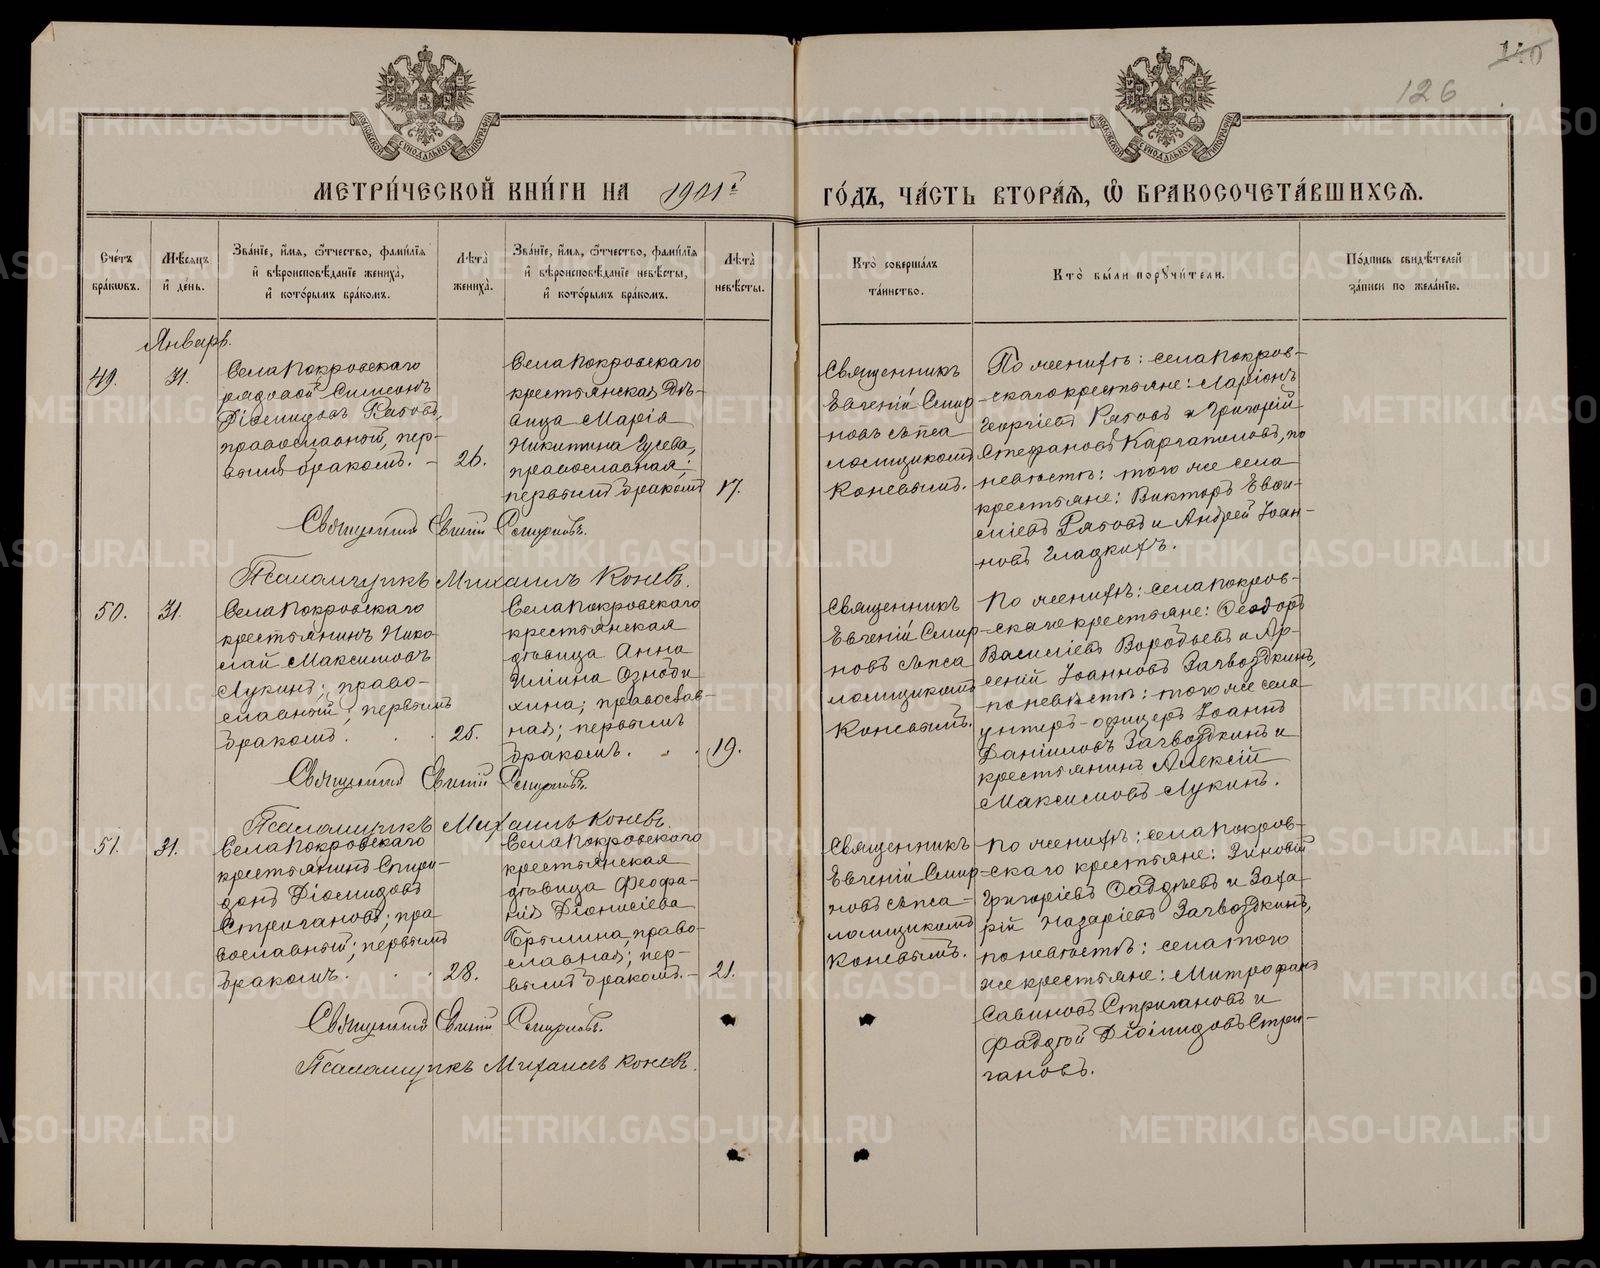 126
МЕТРИ́ЧЕСКОЙ КНИ́ГИ НА 1901й
ГО́ДЪ, ЧА́СТЬ ВТОРА́Я, Ѡ БРАКОСОЧЕТА́ВШИХСЯ.
Сче́тъ бра́ковъ.
Мѣ́сяцъ и҆ де́нь.
Зва́нїе, и҆́мя, ѻ҆́тчество, фамилїя и҆ вѣроисповѣданїе жениха̀, и҆ кото́рымъ бра́комъ.
Лѣ́та жениха̀.
Зва́нїе, и҆́мя, ѻ҆́тчество, фамилїя и҆ вѣроисповѣданїе невѣсты, и҆ кото́рымъ бра́комъ.
Лѣ́та невѣ́сты.
Кто̀ соверша́лъ та́инство.
Кто̀ бы́ли порꙋчи́тели.
По́дпись свидѣ́телей за́писи по жела́нїю.
Январь.
49.
31.
Села Покровскаго
рядовой Симеонъ
Діомидовъ Рябовъ,
православный, пер-
вымъ бракомъ. –
26.
Села Покровскаго
крестьянская дѣ-
вица Марія
Никитина Гусева,
православная;
первымъ бракомъ
17.
Священникъ
Евгеній Смир
новъ съ пса
ломщикомъ
Коневымъ.
По женихѣ: села Покров-
скаго крестьяне: Ларіонъ
Георгіевъ Рябовъ и Григорій
Стефановъ Каргаполовъ, по
невѣстѣ: того же села
крестьяне: Викторъ Евги-
еніевъ Рябовъ и Андрей Іоан-
новъ Гладкихъ.
Священникъ Евгеній Смирновъ.
Псаломщикъ Михаилъ Коневъ.
50.
31.
Села Покровскаго
крестьянинъ Нико
лай Максимовъ
Лукинъ; право-
славный; первымъ
бракомъ.
25.
Села Покровскаго
крестьянская
дѣвица Анна
Иліина Ознобі
хина; православ-
ная; первымъ
бракомъ.
19.
Священникъ
Евгеній Смир
новъ съ пса
ломщикомъ
Коневымъ.
По женихѣ: села Покров-
скаго крестьяне: Ѳеодоръ
Василіевъ Воробьевъ и Ар-
сеній Іоанновъ Загвоздкинъ,
по невѣстѣ: того же села
унтеръ-офицеръ Іоаннъ
Даніиловъ Загвоздкинъ и
крестьянинъ Алексій
Максимовъ Лукинъ.
Священникъ Евгеній Смирновъ.
Псаломщикъ Михаилъ Коневъ.
51.
31.
Села Покровскаго
крестьянинъ Спири-
донъ Діомидовъ
Стригановъ; пра
вославный; первымъ
бракомъ.
28.
Села Покровскаго
крестьянская
дѣвица Феофа-
нія Діонисіева
Брылина, право-
славная; пер-
вымъ бракомъ. –
21.
Священникъ
Евгеній Смир
новъ съ пса-
ломщикомъ
Коневымъ.
По женихѣ: села Покров-
скаго крестьяне: Зиновій
Григоріевъ Ѳаддѣевъ и Заха-
рій Назаріевъ Загвоздкинъ,
по невѣстѣ: села того
же крестьяне: Митрофанъ
Савиновъ Стригановъ и
Фаддѣй Діомидовъ Стри-
гановъ.
Священникъ Евгеній Смирновъ.
Псаломщикъ Михаилъ Коневъ.
METRIKI.GASO-URAL.RU